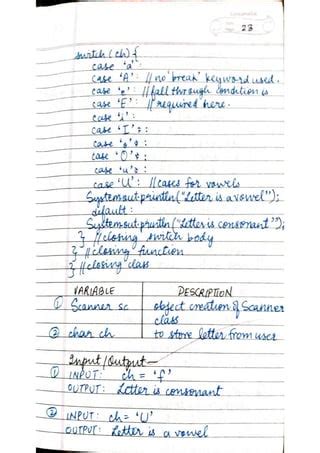 23
switch (ch) {
case 'a':
case 'A': // no 'break' keyword used.
case 'e': // fall through condition is
case 'E': // required here.
case 'i':
case 'I':
case 'o':
case 'O':
case 'u':
case 'U': // cases for vowels
System.out.println("Letter is a vowel");
default:
System.out.println("Letter is consonant");
} // closing switch body
} // closing function
} // closing class
VARIABLE DESCRIPTION
① Scanner sc object creation of Scanner
class
② char ch to store letter from user
Input/Output —
① INPUT: ch = 'f'
OUTPUT: Letter is consonant
② INPUT: ch = 'U'
OUTPUT: Letter is a vowel